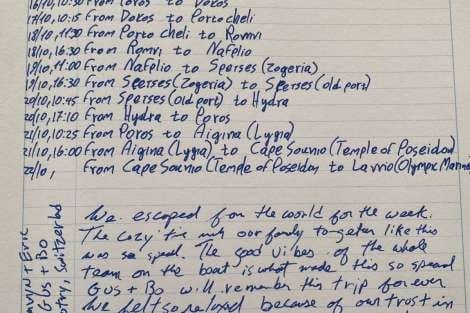 16/10, 10:30 From Poros to Dokos
17/10, 10:15 From Dokos to Porto cheli
18/10, 11:30 From Porto cheli to Romvi
18/10, 16:30 From Romvi to Nafplio
19/10, 11:00 From Nafplio to Spetses (Zogeria)
19/10, 16:30 From Spetses (Zogeria) to Spetses (old port)
20/10, 10:45 From Spetses (old port) to Hydra
20/10, 17:10 From Hydra to Poros
21/10, 10:25 From Poros to Aigina (Lygia)
21/10, 16:00 From Aigina (Lygia) to Cape Sounio (Temple of Poseidon)
22/10, From Cape Sounio (Temple of Poseidon to Lavrio (Olympic Marina
We escaped from the world for the week.
The cozy time with our family together like this
was so special. The good vibes of the whole
team on the boat is what made this so special
Gus + Bo will remember this trip forever
We felt so relaxed because of our trust in
+ Eric
Gus + Bo
Switzerland